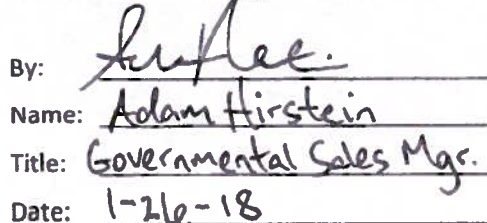 By:
Name: Adam Hirstein
Title: Governmental Sales Mgr.
Date: 1-26-18